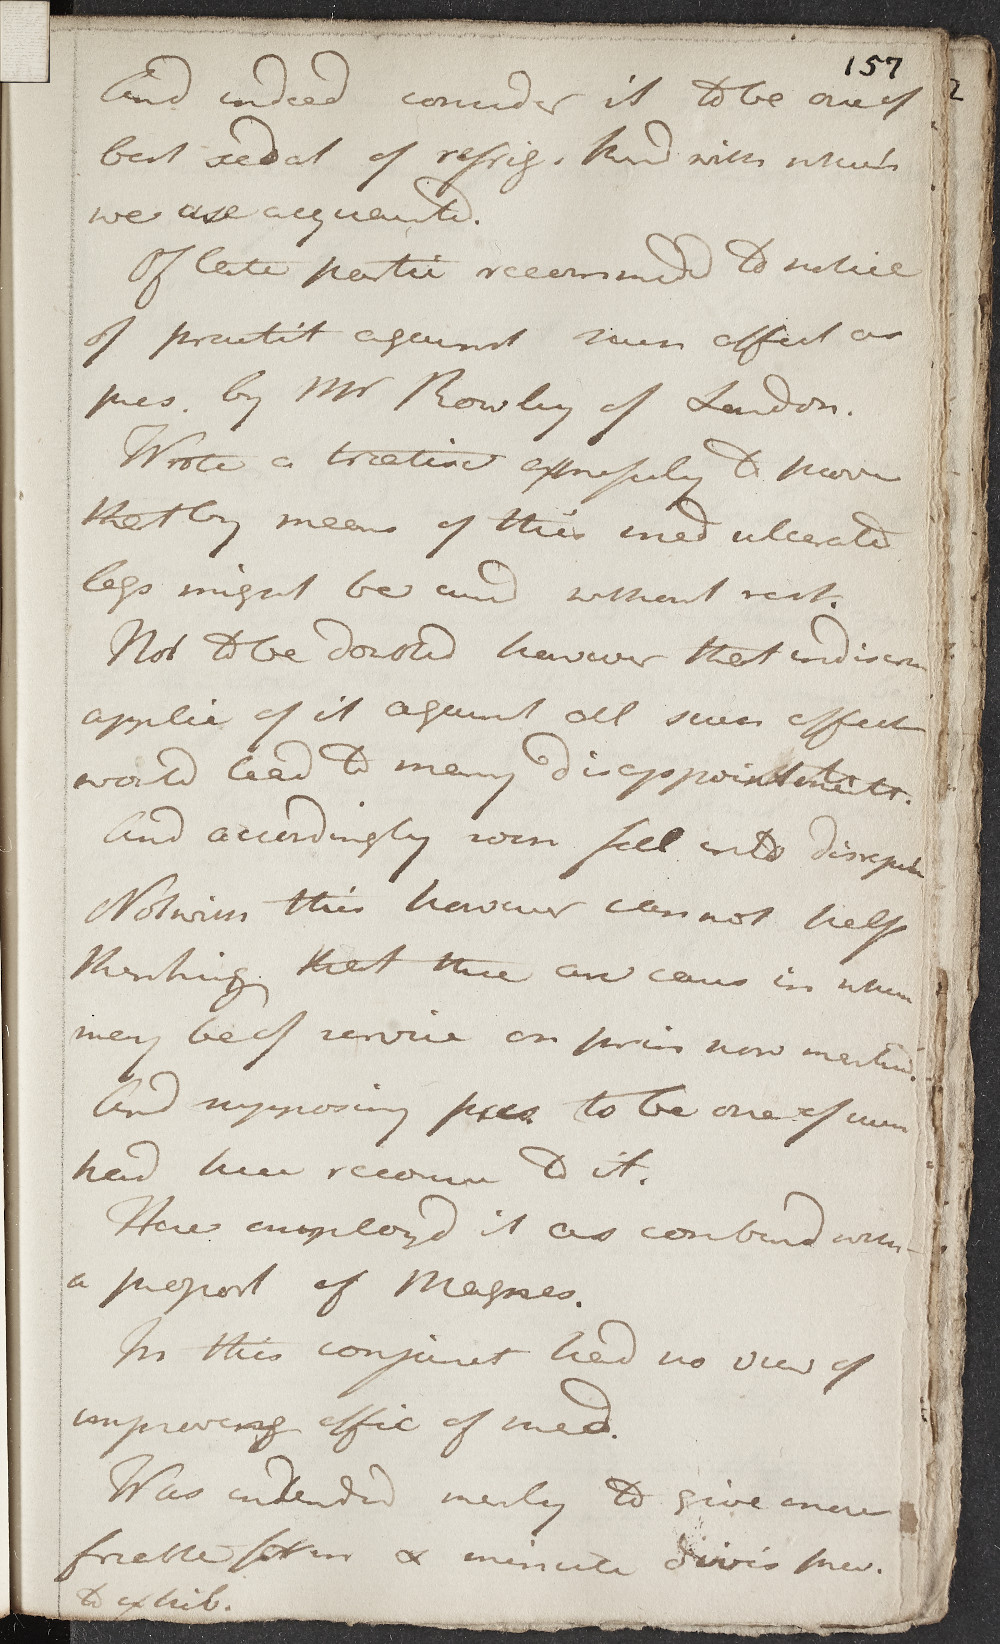 157
2
And indeed consider it to be one of
best sedat of refrig. kind with which
we are acquaintd.
Of late partic recommedd to notice
of practit against such affect as
pres. by Mr Rowley of London.
Wrote a treatise expressly to prove
that by means of this med ulcerated
legs might be curd without rest.
Not to be doubted however that indiscrim
applic of it against all such affect
would lead to many disappointments.
And accordingly soon fell into disrepute
Notwith this however can not help
thinking that there are cases in which
may be of service on princ now mentiond.
And supposing pres. to be one of such
had here recours to it.
Have employd it as combind with
a proport of Magnes.
In this conjunct had no view of
improving effic of med.
Was intended merly to give more
friable form & minute divis prev.
to exhib.